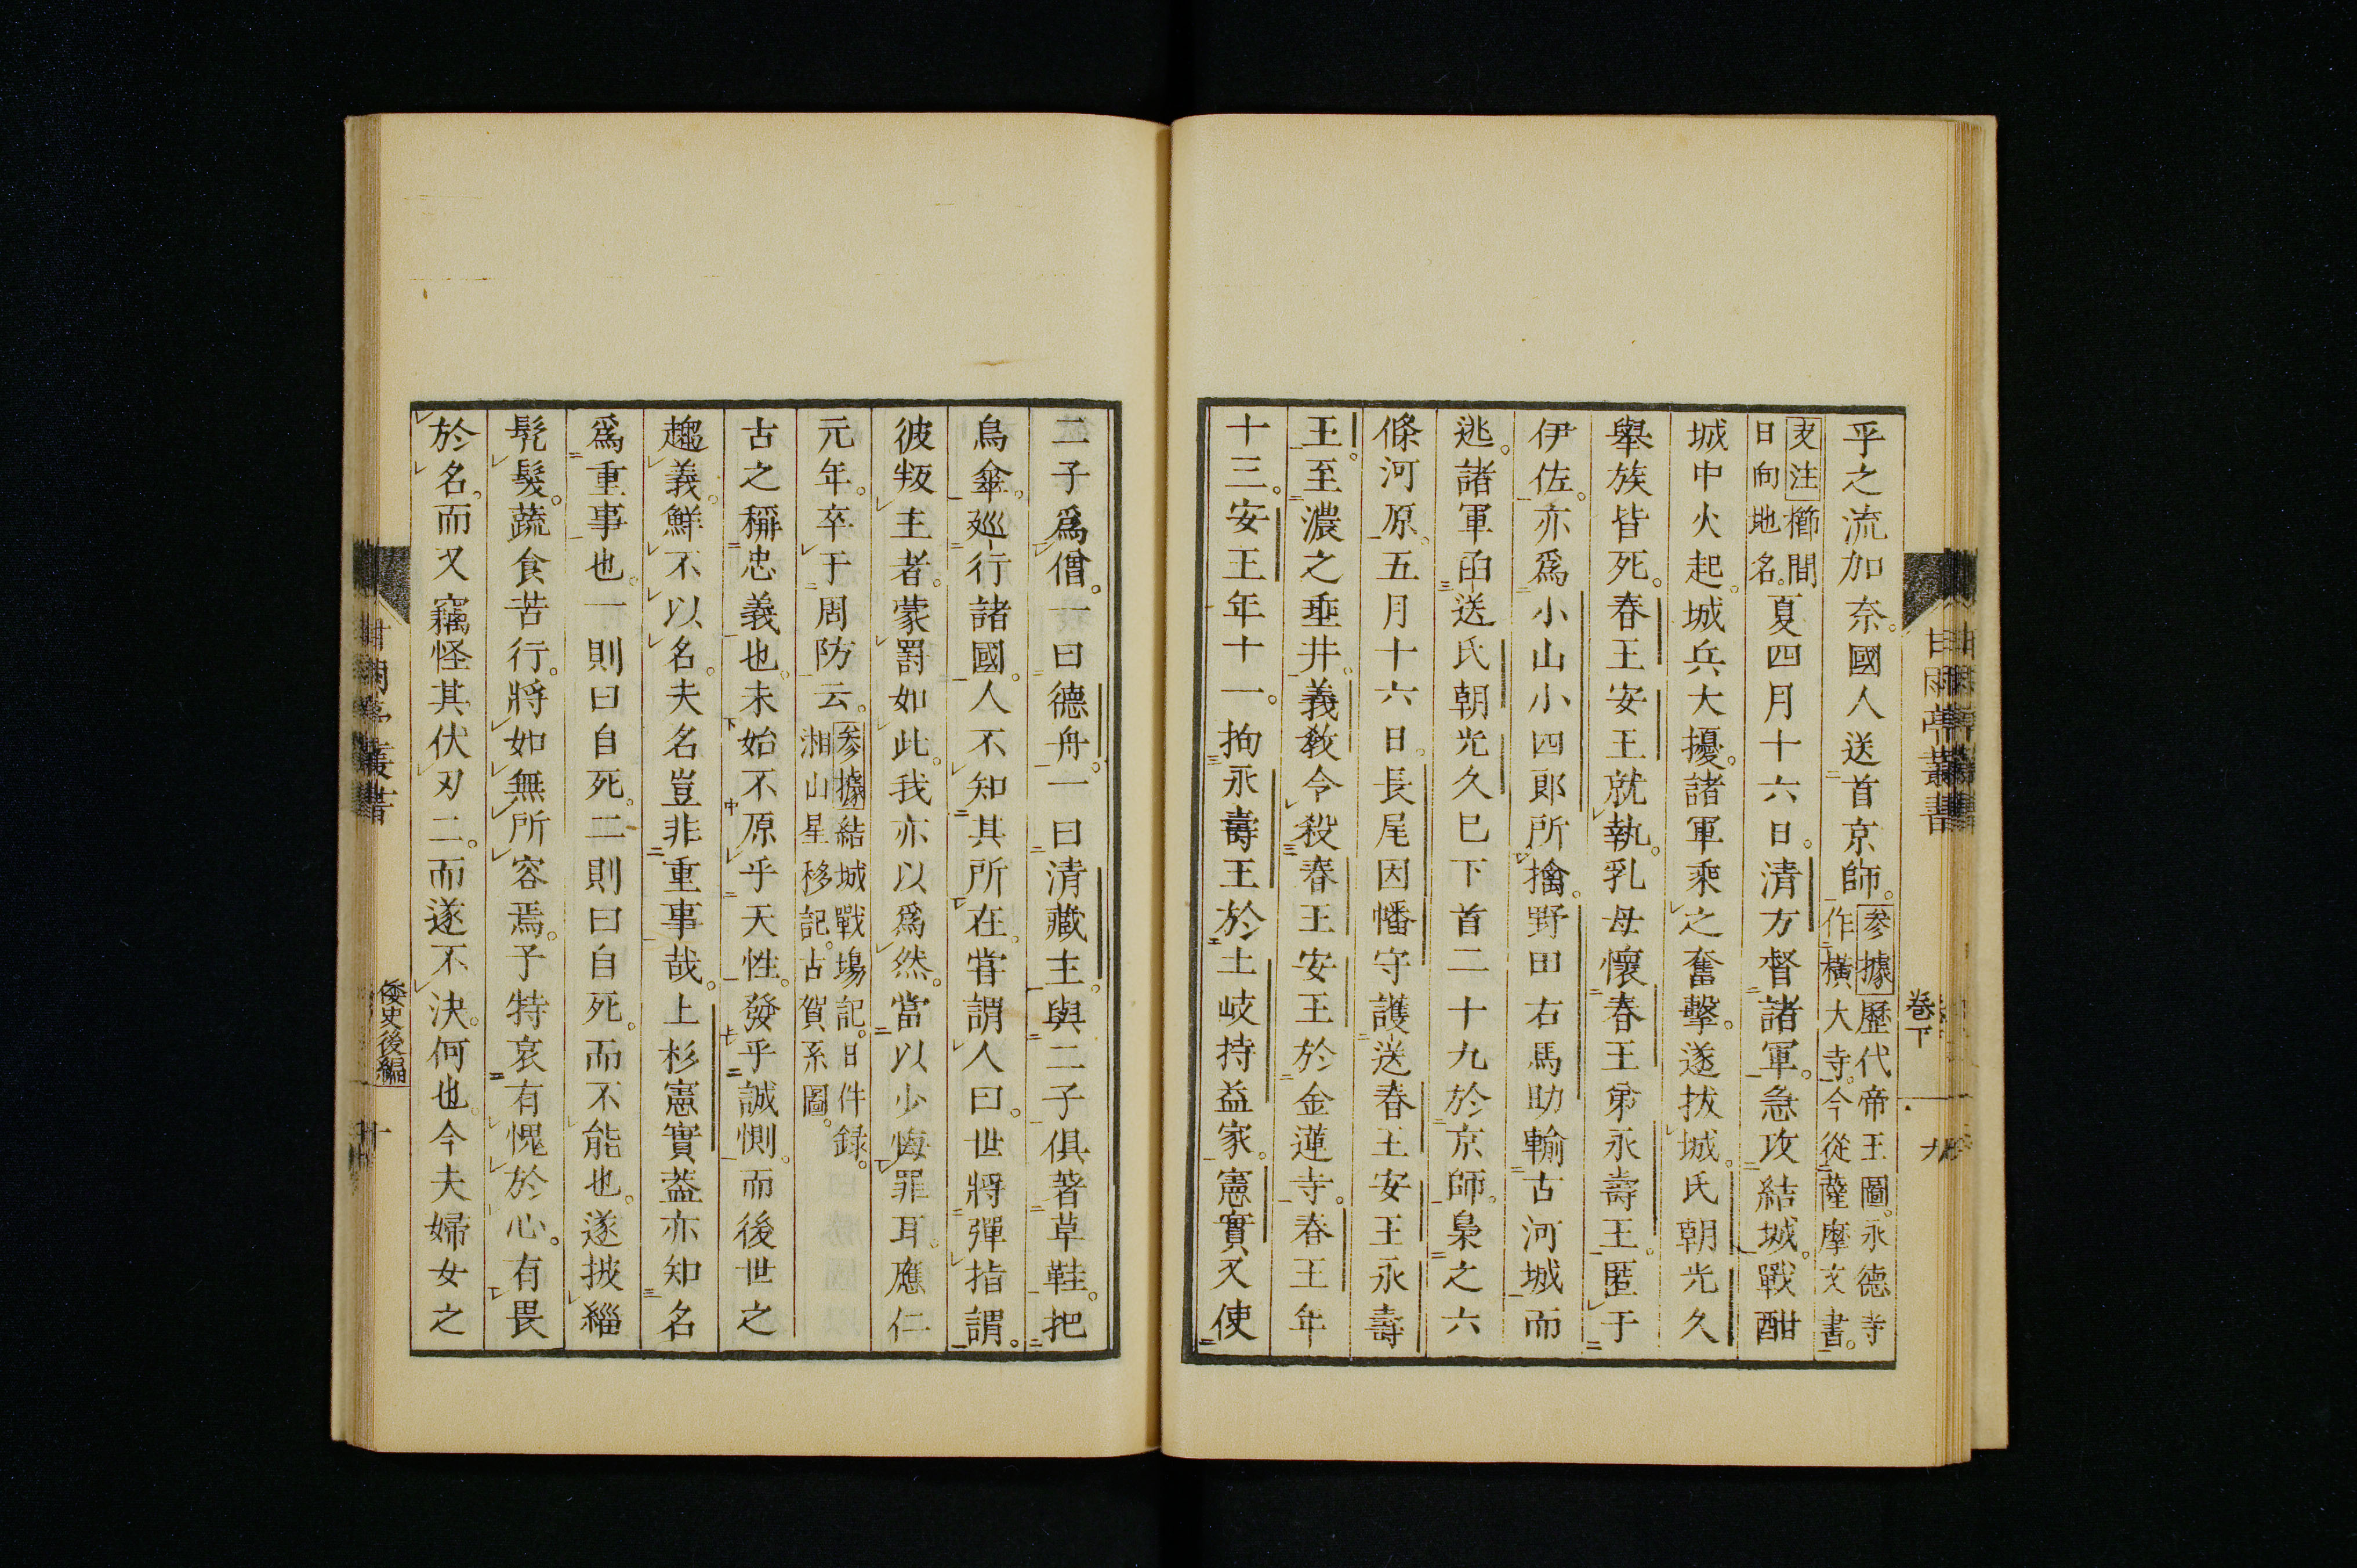 乎之流加奈。國人送首京師。參據歷代帝王圖。永德寺
作橫大寺。今從薩摩文書。
支注櫛間
日向地名。夏四月十六日。清方督諸軍。急攻結城。戰酣
城中火起。城兵大擾。諸軍乘之奮擊。遂拔城。氏朝光久
舉族皆死。春王安王就執。乳母懷春王弟永壽王。匿于
伊佐。亦爲小山小四郎所擒。野田右馬助輸古河城而
逃。諸軍函送氏朝光久已下首二十九於京師。梟之六
條河原。五月十六日。長尾因幡守護送春王安王永壽
王。至濃之垂井。義教令殺春王安王於金蓮寺。春王年
十三。安王年十一。拘永壽王於土岐持益家。憲實又使
二子爲僧。一曰德舟。一曰清藏主。與二子俱著草鞋。把
鳥傘。廵行諸國。人不知其所在。嘗謂人曰。世將彈指謂。
彼叛主者。蒙罰如此。我亦以爲然。當以少悔罪耳。應仁
元年。卒于周防云。參據結城戰場記。日件錄。
湘山星移記。古賀系圖。
古之稱忠義也。未始不原乎天性。發乎誠惻。而後世之
趨義。鮮不以名。夫名豈非重事哉。上杉憲實蓋亦知名
爲重事也。一則曰自死。二則曰自死。而不能也。遂披緇
髠髮。蔬食苦行。將如無所容焉。予特哀有愧於心。有畏
於名。而又竊怪其伏刃二。而遂不決。何也。今夫婦女之
甘雨亭叢書
卷下
九
甘雨亭叢書
倭史後編
十